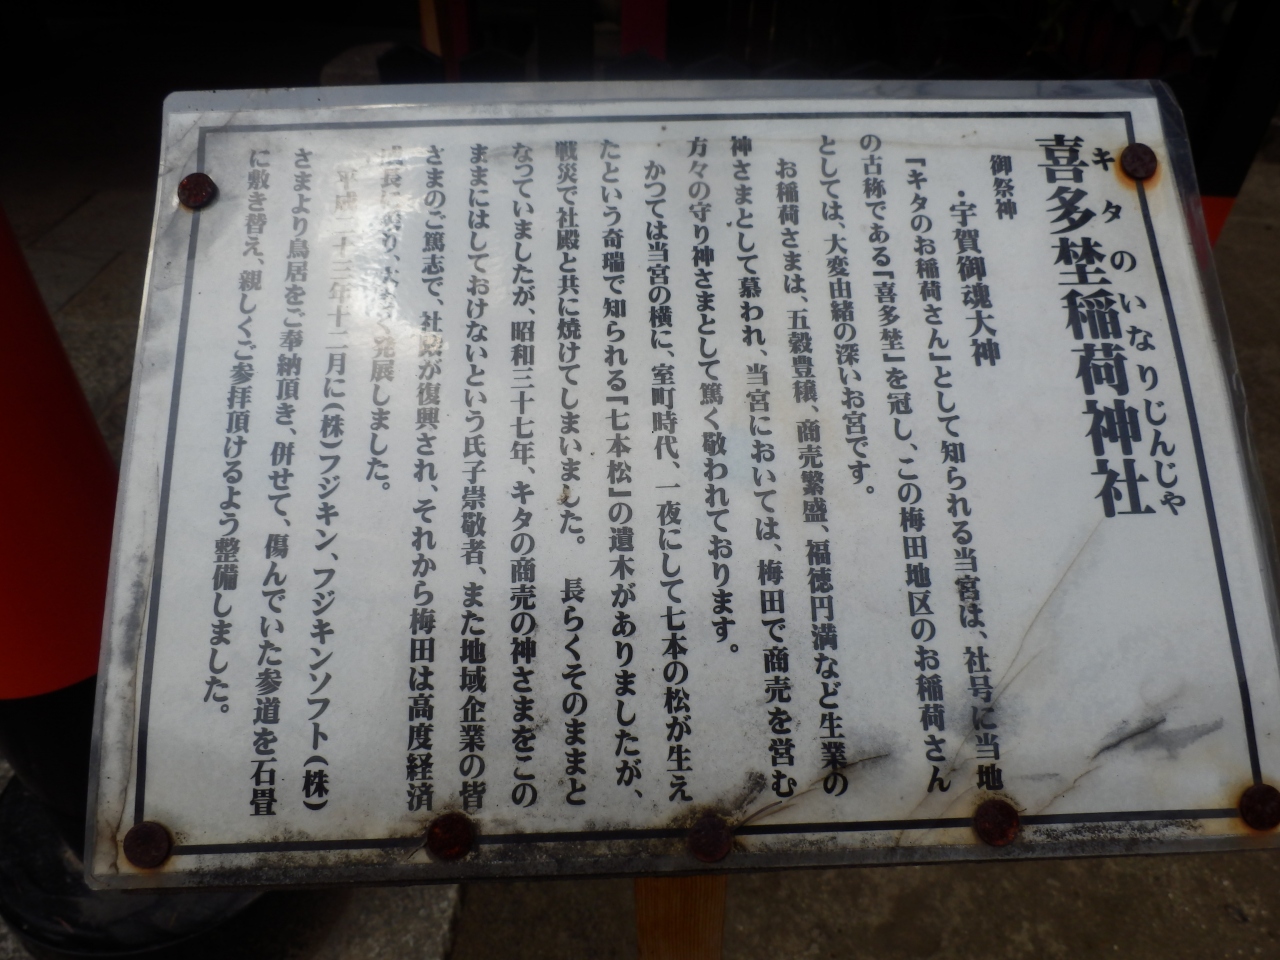 喜多埜稲荷神社
キタのいなりじんじゃ
御祭神
・宇賀御魂大神
『キタのお稲荷さん』として知られる当宮は、社号に当地
の古称である『喜多埜』を冠し、この梅田地区のお稲荷さん
としては、大変由緒の深いお宮です。
お稲荷さまは、五穀豊穣、商売繁盛、福徳円満など生業の
神さまとして慕われ、当宮においては、梅田で商売を営む
方々の守り神さまとして篤く敬われております。
かつては当宮の横に、室町時代、一夜にして七本の松が生え
たという奇瑞で知られる『七本松』の遺木がありましたが、
戦災で社殿と共に焼けてしまいました。 長らくそのままと
なっていましたが、昭和三十七年、キタの商売の神さまをこの
ままにはしておけないという氏子崇敬者、また地域企業の皆
さまのご篤志で、社殿が復興され、それから梅田は高度経済
成長に乗り、大きく発展しました。
平成二十三年十二月に(株)フジキン、フジキンソフト(株)
さまより鳥居をご奉納頂き、併せて、傷んでいた参道を石畳
に敷き替え、親しくご参拝頂けるよう整備しました。